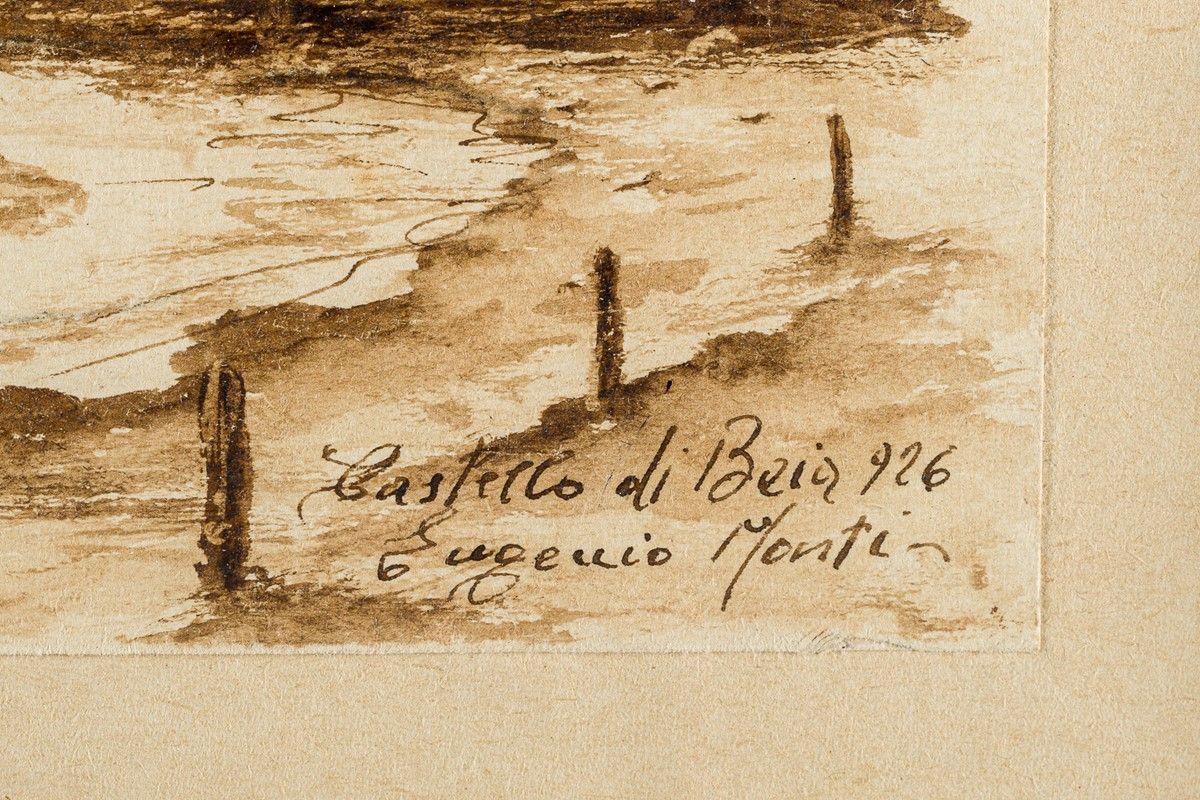 Castello di Beia 926
Eugenio Monti